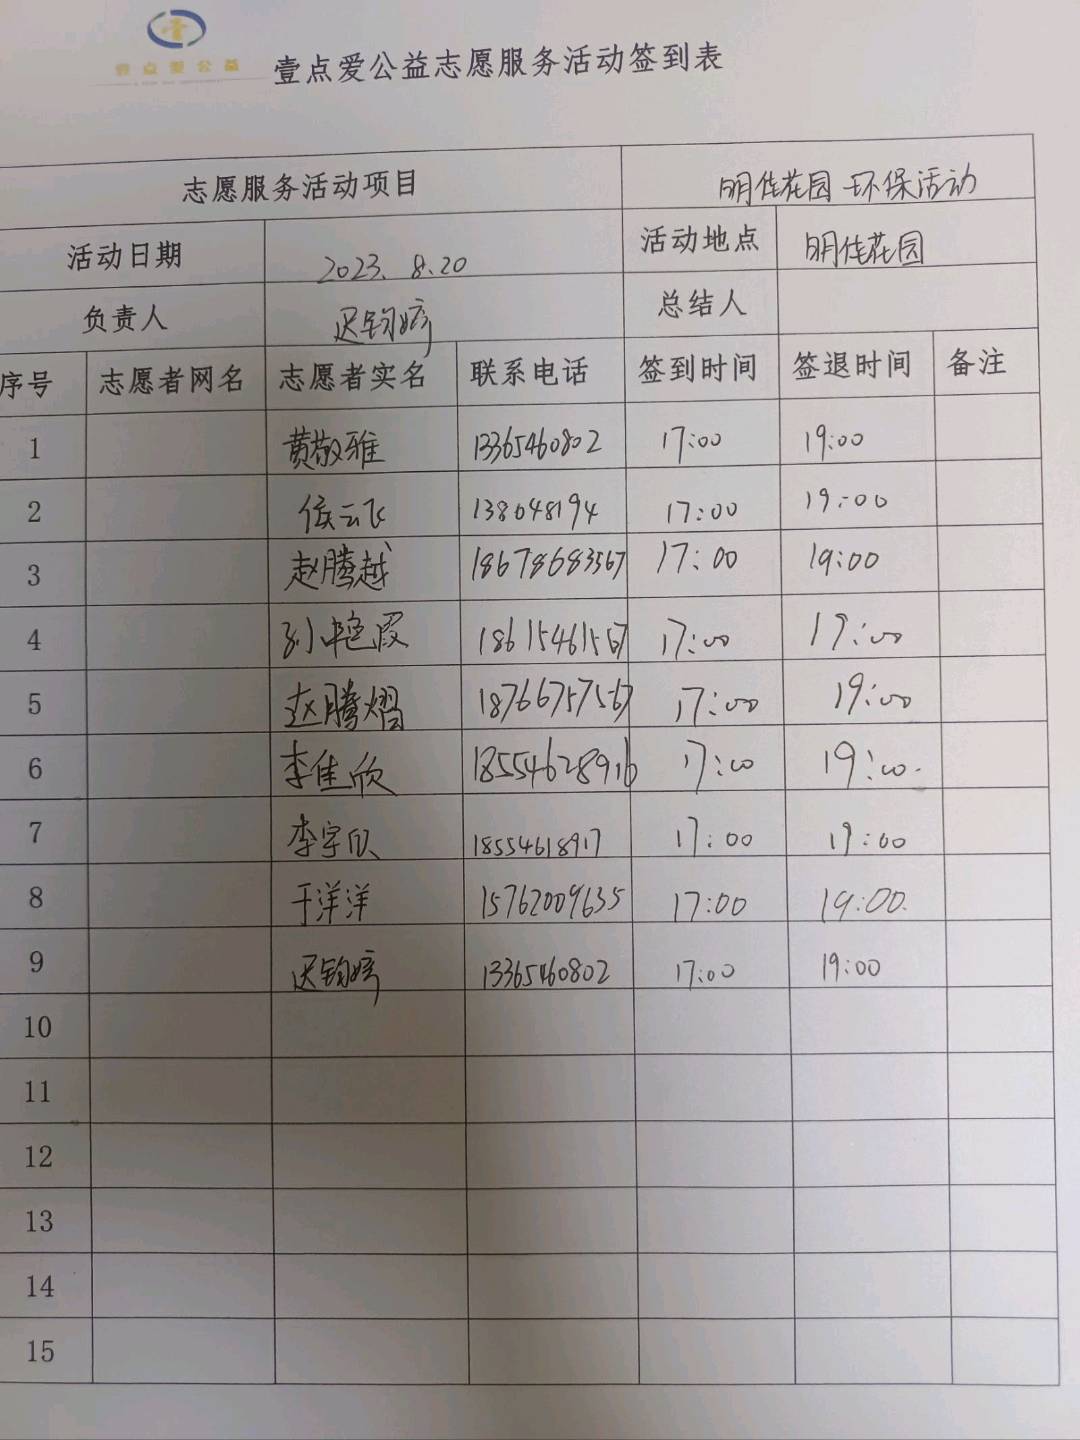 壹点爱公益
壹点爱公益志愿服务活动签到表
志愿服务活动项目 明佳花园 环保活动
活动日期 2023.8.20 活动地点 明佳花园
负责人 迟钧婷 总结人
序号 志愿者网名 志愿者实名 联系电话 签到时间 签退时间 备注
1 黄敬雅 13365460802 17:00 19:00
2 侯云飞 138048194 17:00 19:00
3 赵腾越 18678683567 17:00 19:00
4 孙艳霞 18615461567 17:00 19:00
5 赵腾熠 18766757567 17:00 19:00
6 李佳欣 18554628916 17:00 19:00.
7 李宇欣 18554618917 17:00 19:00
8 于洋洋 15762009635 17:00 19:00.
9 迟钧婷 13365460802 17:00 19:00
10
11
12
13
14
15